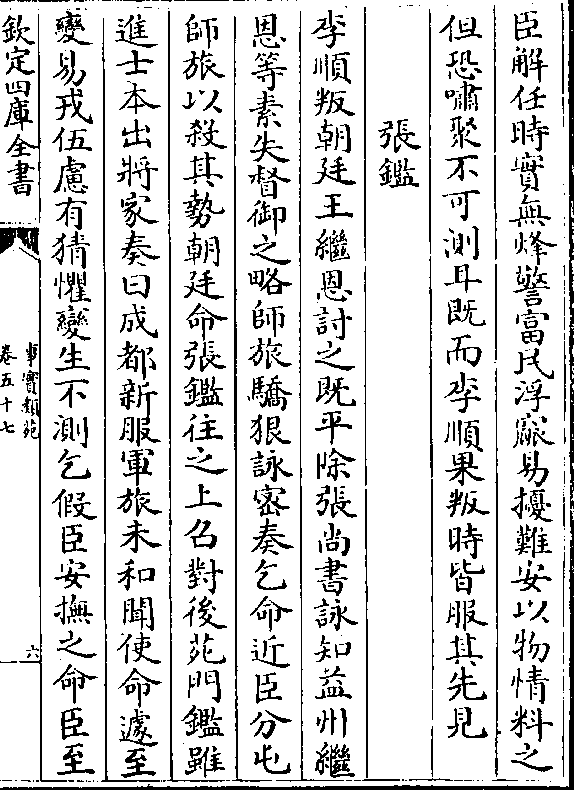 臣解任時實無烽警富民浮窳易擾難安以物情料之
但恐嘯聚不可測耳既而李順果叛時皆服其先見
張鑑
李順叛朝廷王繼恩討之既平除張尚書詠知益州繼
恩等素失督御之略師旅驕狠詠密奏乞命近臣分屯
師旅以殺其勢朝廷命張鑑往之上召對後苑門鑑雖
進士本出將家奏曰成都新服軍旅未和聞使命遽至
變易戎伍慮有猜懼變生不測乞假臣安撫之命臣至
欽定四庫全書
事實類苑
卷五十七
六